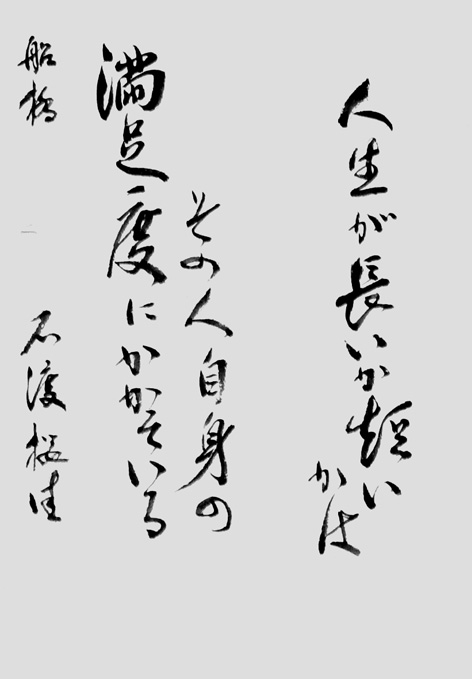 人生が長いか短い
かは
その人自身の
満足度にかかている
船橋 石渡桜佳